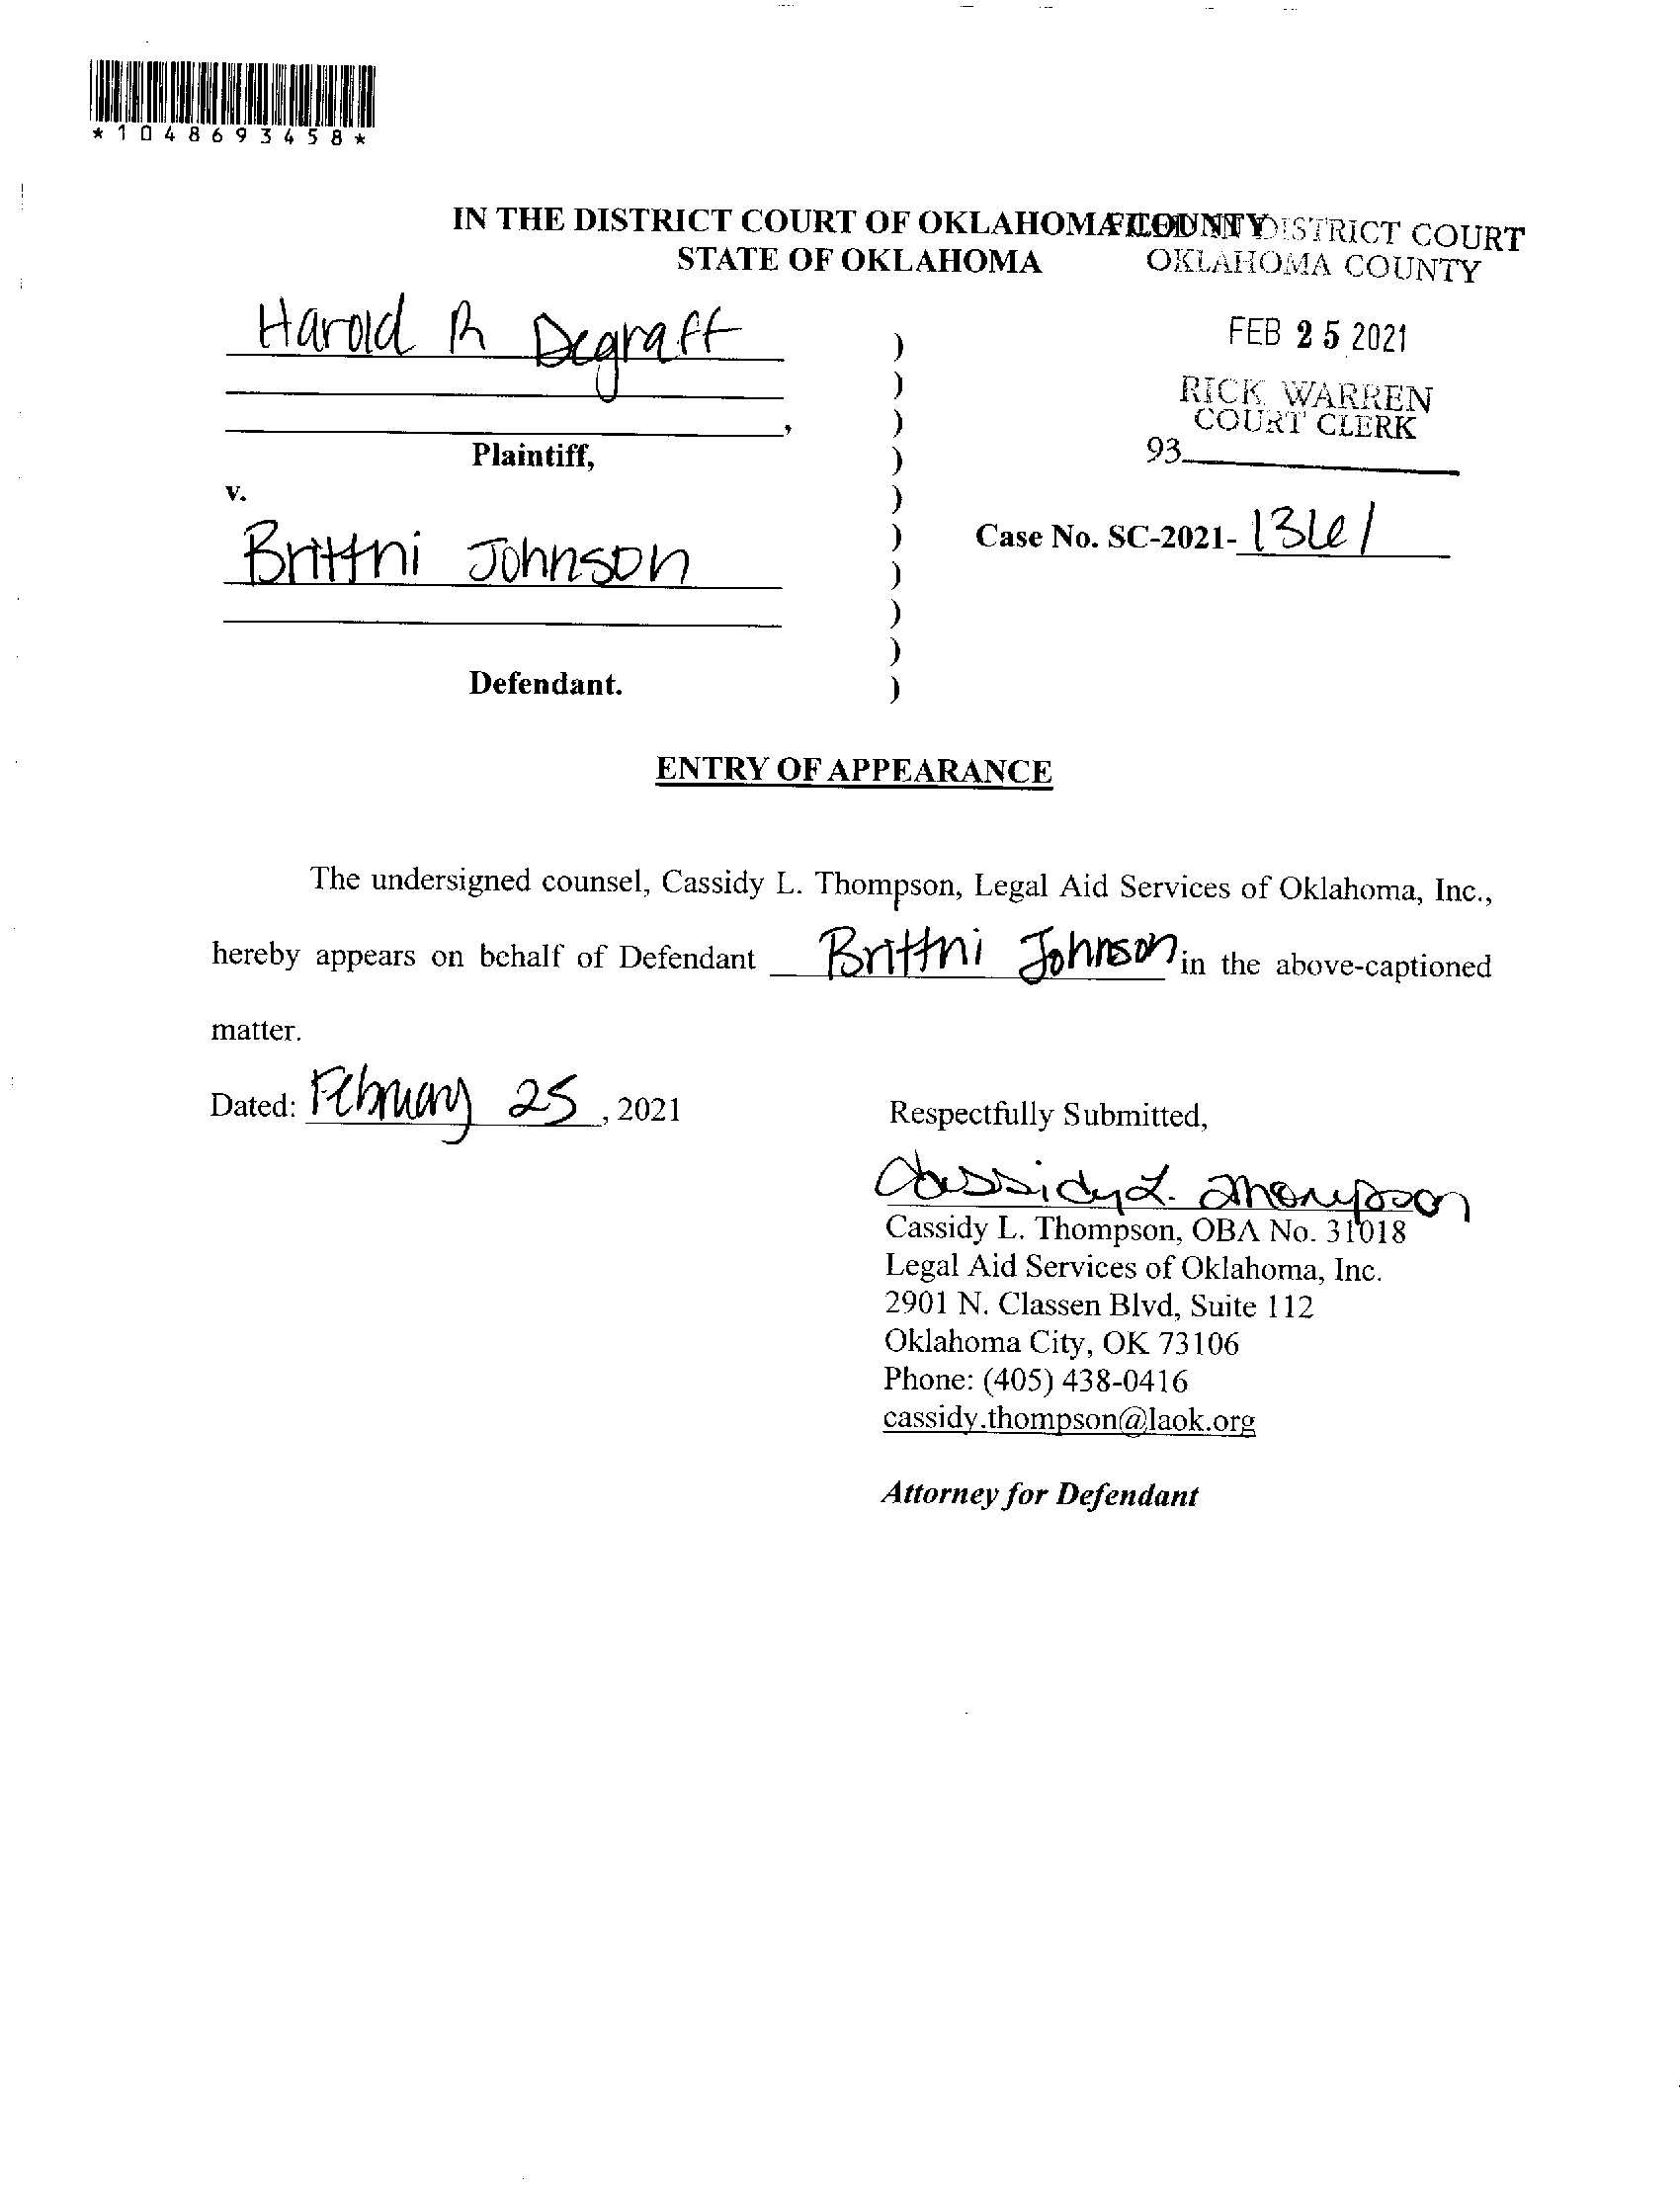 *1048693458*
IN THE DISTRICT COURT OF OKLAHOMA COUNTY
STATE OF OKLAHOMA
FILED IN DISTRICT COURT
OKLAHOMA COUNTY
FEB 25 2021
RICK WARREN
COURT CLERK
93
Harold R Degraff
,
Plaintiff,
v.
Brittni Johnson
Defendant.
)
)
)
)
)
)
)
)
)
)
Case No. SC-2021-1361
ENTRY OF APPEARANCE
The undersigned counsel, Cassidy L. Thompson, Legal Aid Services of Oklahoma, Inc.,
hereby appears on behalf of Defendant Brittni Johnson in the above-captioned
matter.
Dated: February 25, 2021
Respectfully Submitted,
Cassidy L. Thompson
Cassidy L. Thompson, OBA No. 31018
Legal Aid Services of Oklahoma, Inc.
2901 N. Classen Blvd, Suite 112
Oklahoma City, OK 73106
Phone: (405) 438-0416
cassidy.thompson@laok.org
Attorney for Defendant